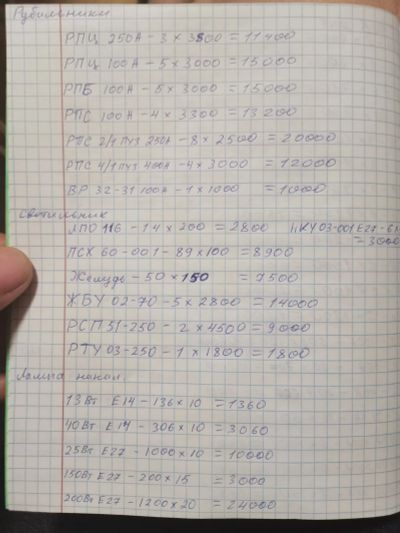 Рубильники
РПЦ 250А - 3 × 3800 = 11400
РПЦ 100А - 5 × 3000 = 15000
РПБ 100А - 5 × 3000 = 15000
РПС 100А - 4 × 3300 = 13200
РПС 2/1 ПУЗ 250А - 8 × 2500 = 20000
РПС 4/1 ПУЗ 400А - 4 × 3000 = 12000
ВР 32-31 100А - 1 × 1000 = 1000
Светильник
ЛПО 116 - 14 × 200 = 2800 НКУ 03-001 Е27 - 6
= 3000
ПСХ 60-001 - 89 × 100 = 8900
Желудь - 50 × 150 = 7500
ЖБУ 02-70 - 5 × 2800 = 14000
РСП 51-250 - 2 × 4500 = 9000
РТУ 03-250 - 1 × 1800 = 1800
Лампа накал.
13Вт Е14 - 136 × 10 = 1360
40Вт Е14 - 306 × 10 = 3060
25Вт Е27 - 1000 × 10 = 10000
150Вт Е27 - 200 × 15 = 3000
200Вт Е27 - 1200 × 20 = 24000